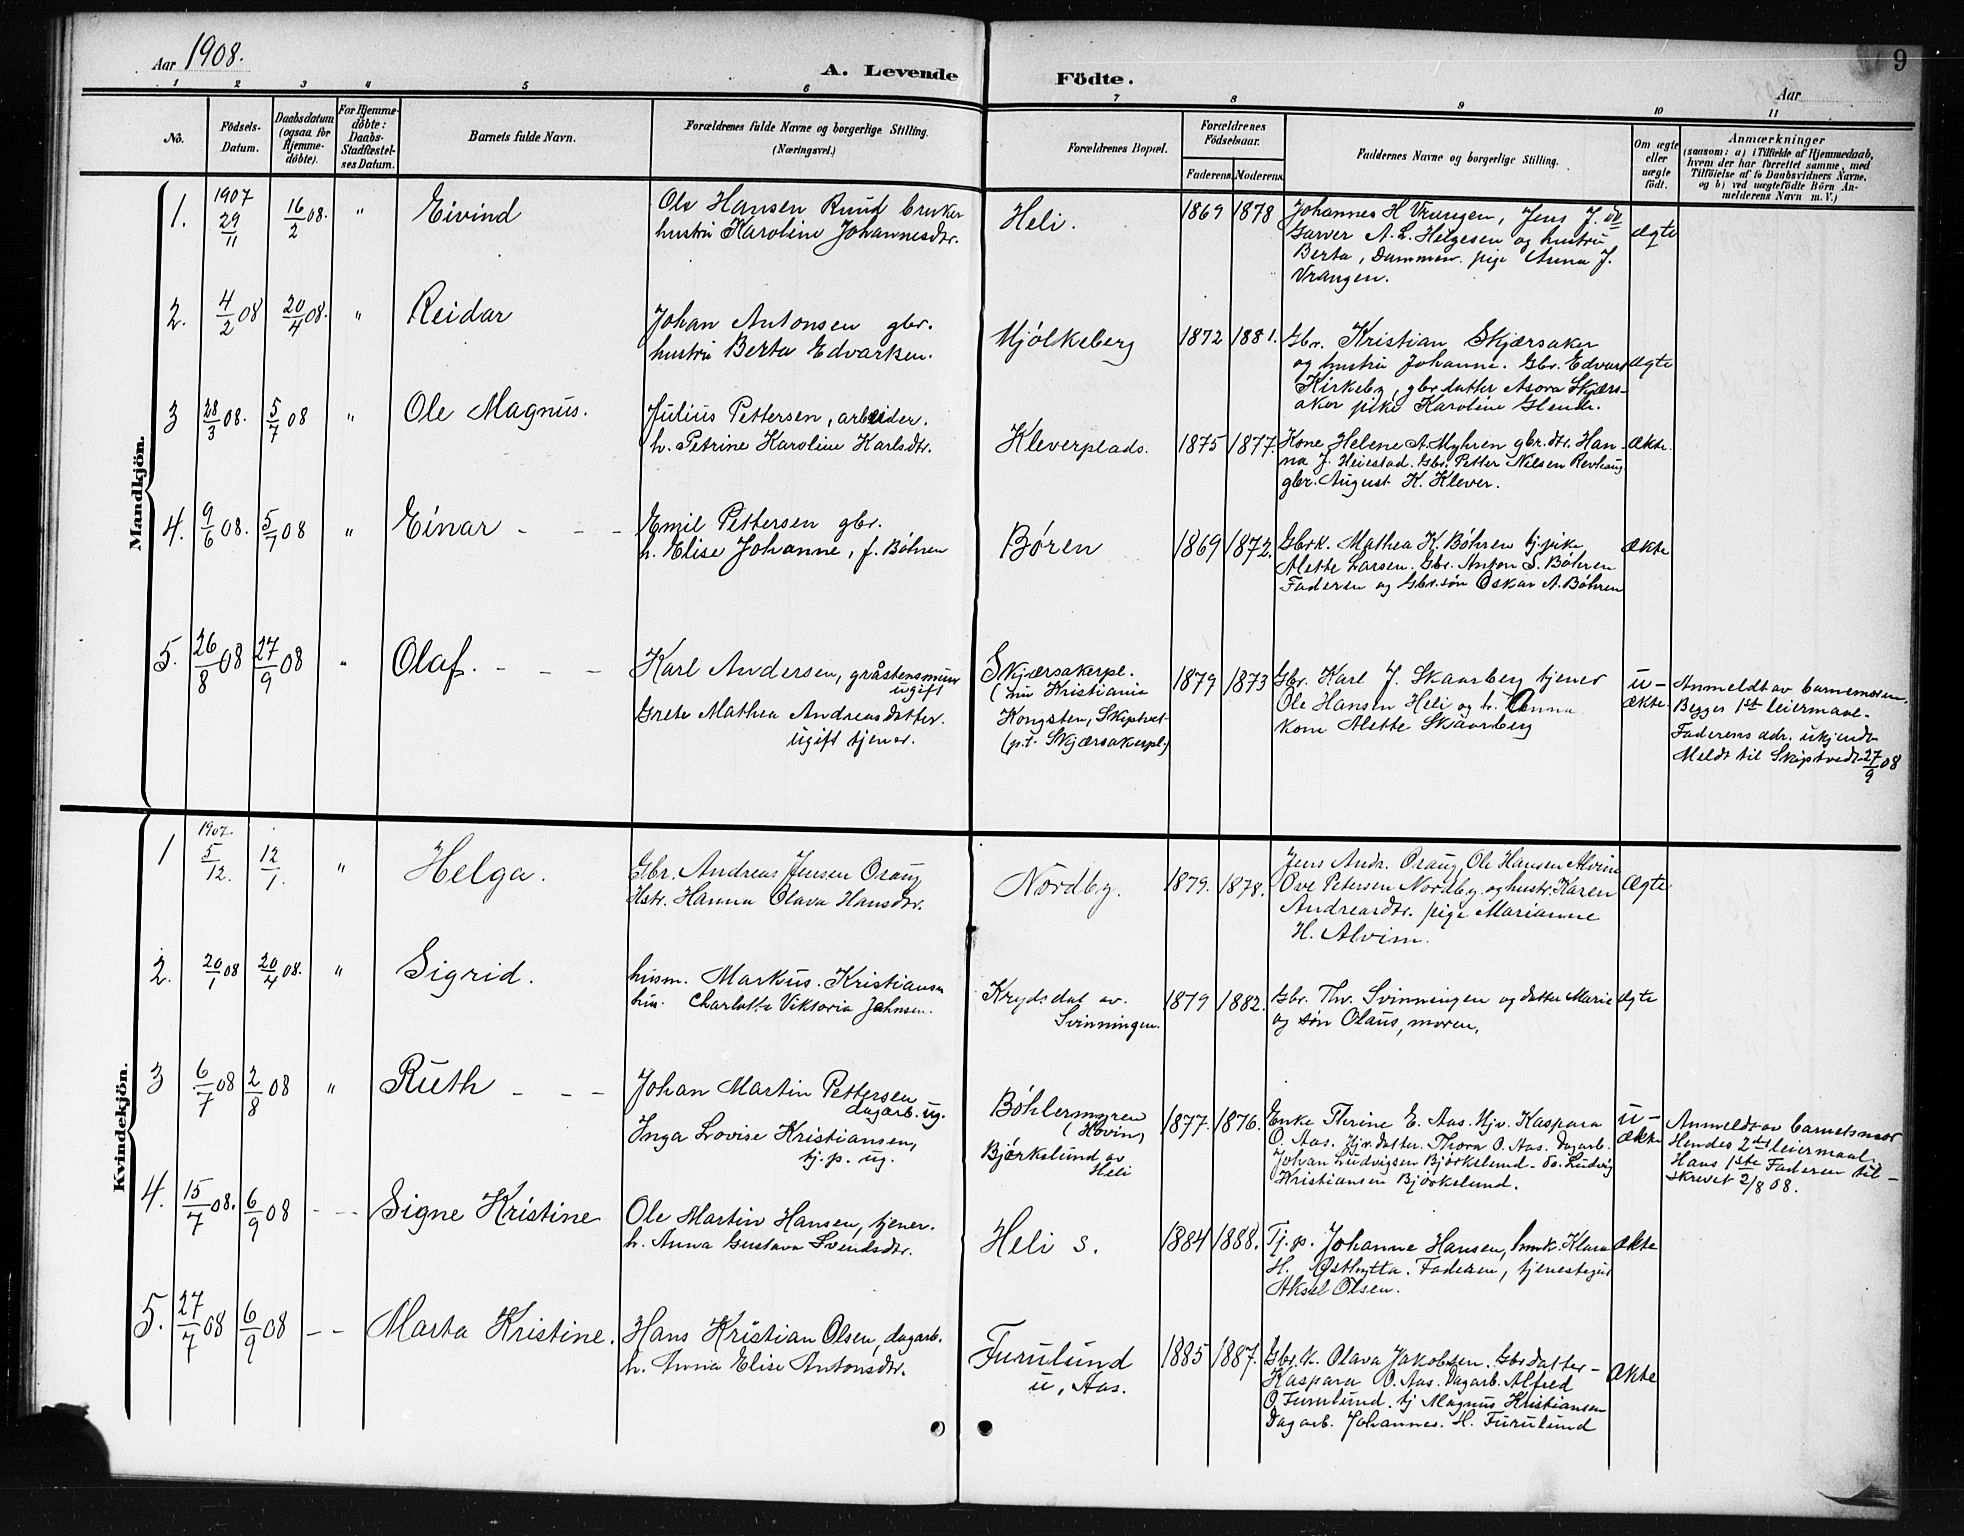 Aar 1908.
A. Levende
Födte.
Aar
9
1 2 3 4 5 6
7 8 9 10 11
No.
Födsels-
Datum.
Daabsdatum
(ogsaa for
Hjemme-
döbte).
For Hjemme-
döbte:
Daabs-
Stadfæstel-
ses Datum.
Barnets fulde Navn.
Forældrenes fulde Navne og borgerlige Stilling.
(Næringsvei.)
Forældrenes Bopæl.
Forældrenes
Födselsaar.
Faderens.
Moderens.
Faddernes Navne og borgerlige Stilling.
Om ægte
eller
uægte
födt.
Anmærkninger
(saasom: a) i Tilfælde af Hjemmedaab,
hvem der har forrettet samme, med
Tilföielse af to Daabsvidners Navne,
og b) ved uægtefödte Börn An-
melderens Navn m. V.)
Mandkjön.
1. 1907 29/11 16/2 08. " Eivind
Ole Hansen Ruud bruker
hustru Karoline Johannesdtr.
Heli. 1869 1878
Johannes H Vrangen, Jens J. do
Garver A. L. Helgesen og hustru
Berta, Dammen. pige Anna J.
Vrangen.
ægte
2. 4/2 08 20/4 08. " Reidar
Johan Antonsen gbr.
hustru Berta Edvarsen.
Mjölkeberg 1872 1881.
Gbr. Kristian Skjærsaker
og hustru Johanne. Gbr. Edvard
Kirkeby, gbr. datter Asora Skjærs-
aker pike Karoline Glende.
ægte
3 28/3 08. 5/7 08 " Ole Magnus.
Julius Pettersen, arbeider.
h. Petrine Karoline Karlsdtr.
Kleverplads. 1875 1877.
Kone Helene A. Myhren gbr. dtr. Han-
na J. Heiestad. Gbr. Petter Nilsen Revhaug
gbr. August K. Klever.
Ækte.
4. 9/6 08. 5/7 08 " Einar - - -
Emil Pettersen gbr.
h. Elise Johanne, f. Böhren
Børen 1869 1872.
Gbrk. Mathea K. Böhren tj. pike
Alette Larsen. Gbr. Anton S. Böhren
Faderen og Gbr. søn Oskar A. Böhren
Ækte
5. 26/8 08 27/9 08 " Olaf. - - -
Karl Andersen, gråstensmurer
ugift
Grete Mathea Andreasdatter.
ugift tjener.
Skjærsakerpl.
(nu Kristiania
Kongsten, Skiptvet
(p.t. Skjærsakerpl.)
1879 1873
Gbr. Karl J. Skaarberg tjener
Ole Hansen Heli og h. Anna.
kone Alette Skaarberg
u-
ækte
Anmeldt av barnemoren.
Begges 1st leiermaal.
Faderens adr. ukjendt
Meldt til Skiptvedt 27/9 08
Kvindekjön.
1 1907. 5/12. 12/1. " Helga.
Gbr. Andreas Jensen Oraug
Hstr. Hanna Olava Hansdtr.
Nordby. 1879. 1878.
Jens Andr. Oraug, Ole Hansen Alvim
Ove Petersen Nordby og hustr. Karen
Andreasdtr. pige Marianne
H. Alvim.
Ægte
2. 20/1 08 20/4 08. " Sigrid.
husm. Markus Kristiansen
hu. Charlotte Viktoria Jahnsen.
Krydsdal av.
Svinningen.
1879 1882.
Gbr. Thv. Svinningen og datter Marie
og søn Olaus, moren,
Ægte
3 6/7 08 2/8 08 " Ruth - - -
Johan Martin Pettersen
dagarb. ug.
Inga Lovise Kristiansen,
tj. p. ug.
Böhlermyren
(Hovin)
Bjørkelund av
Heli
1877. 1876.
Enke Thrine E. Aas. Hjv. Kaspara
O. Aas. Hjv. datter. Thora O. Aas. Dagarb.
Johan Ludvigsen Bjørkelund - do. Ludvig
Kristiansen Bjørkelund.
u-
ækte
Anmeldt av barnetsmor
Hendes 2det leiermaal.
Hans 1ste Faderen til-
skrevet 2/8 08.
4. 15/7 08. 6/9 08 - - Signe Kristine
Ole Martin Hansen, tjener.
h. Anna Gustava Svendsdtr.
Heli s. 1884 1888.
Tj. p. Johanne Hansen, Klara
H. Østhytta. Faderen, tjenestegut
Aksel Olsen.
Ækte
5. 27/7 08 6/9 08 - - Marta Kristine.
Hans Kristian Olsen, dagarb.
h. Anna Elise Antonsdtr.
Furulund
u, Aas.
1885 1887.
Gbr. k. Olava Jakobsen. Gbr datter -
Kaspara O. Aas. Dagarb. Alfred
O. Furulund. tj Magnus Kristiansen
Dagarb. Johannes. H. Furulund
Ækte